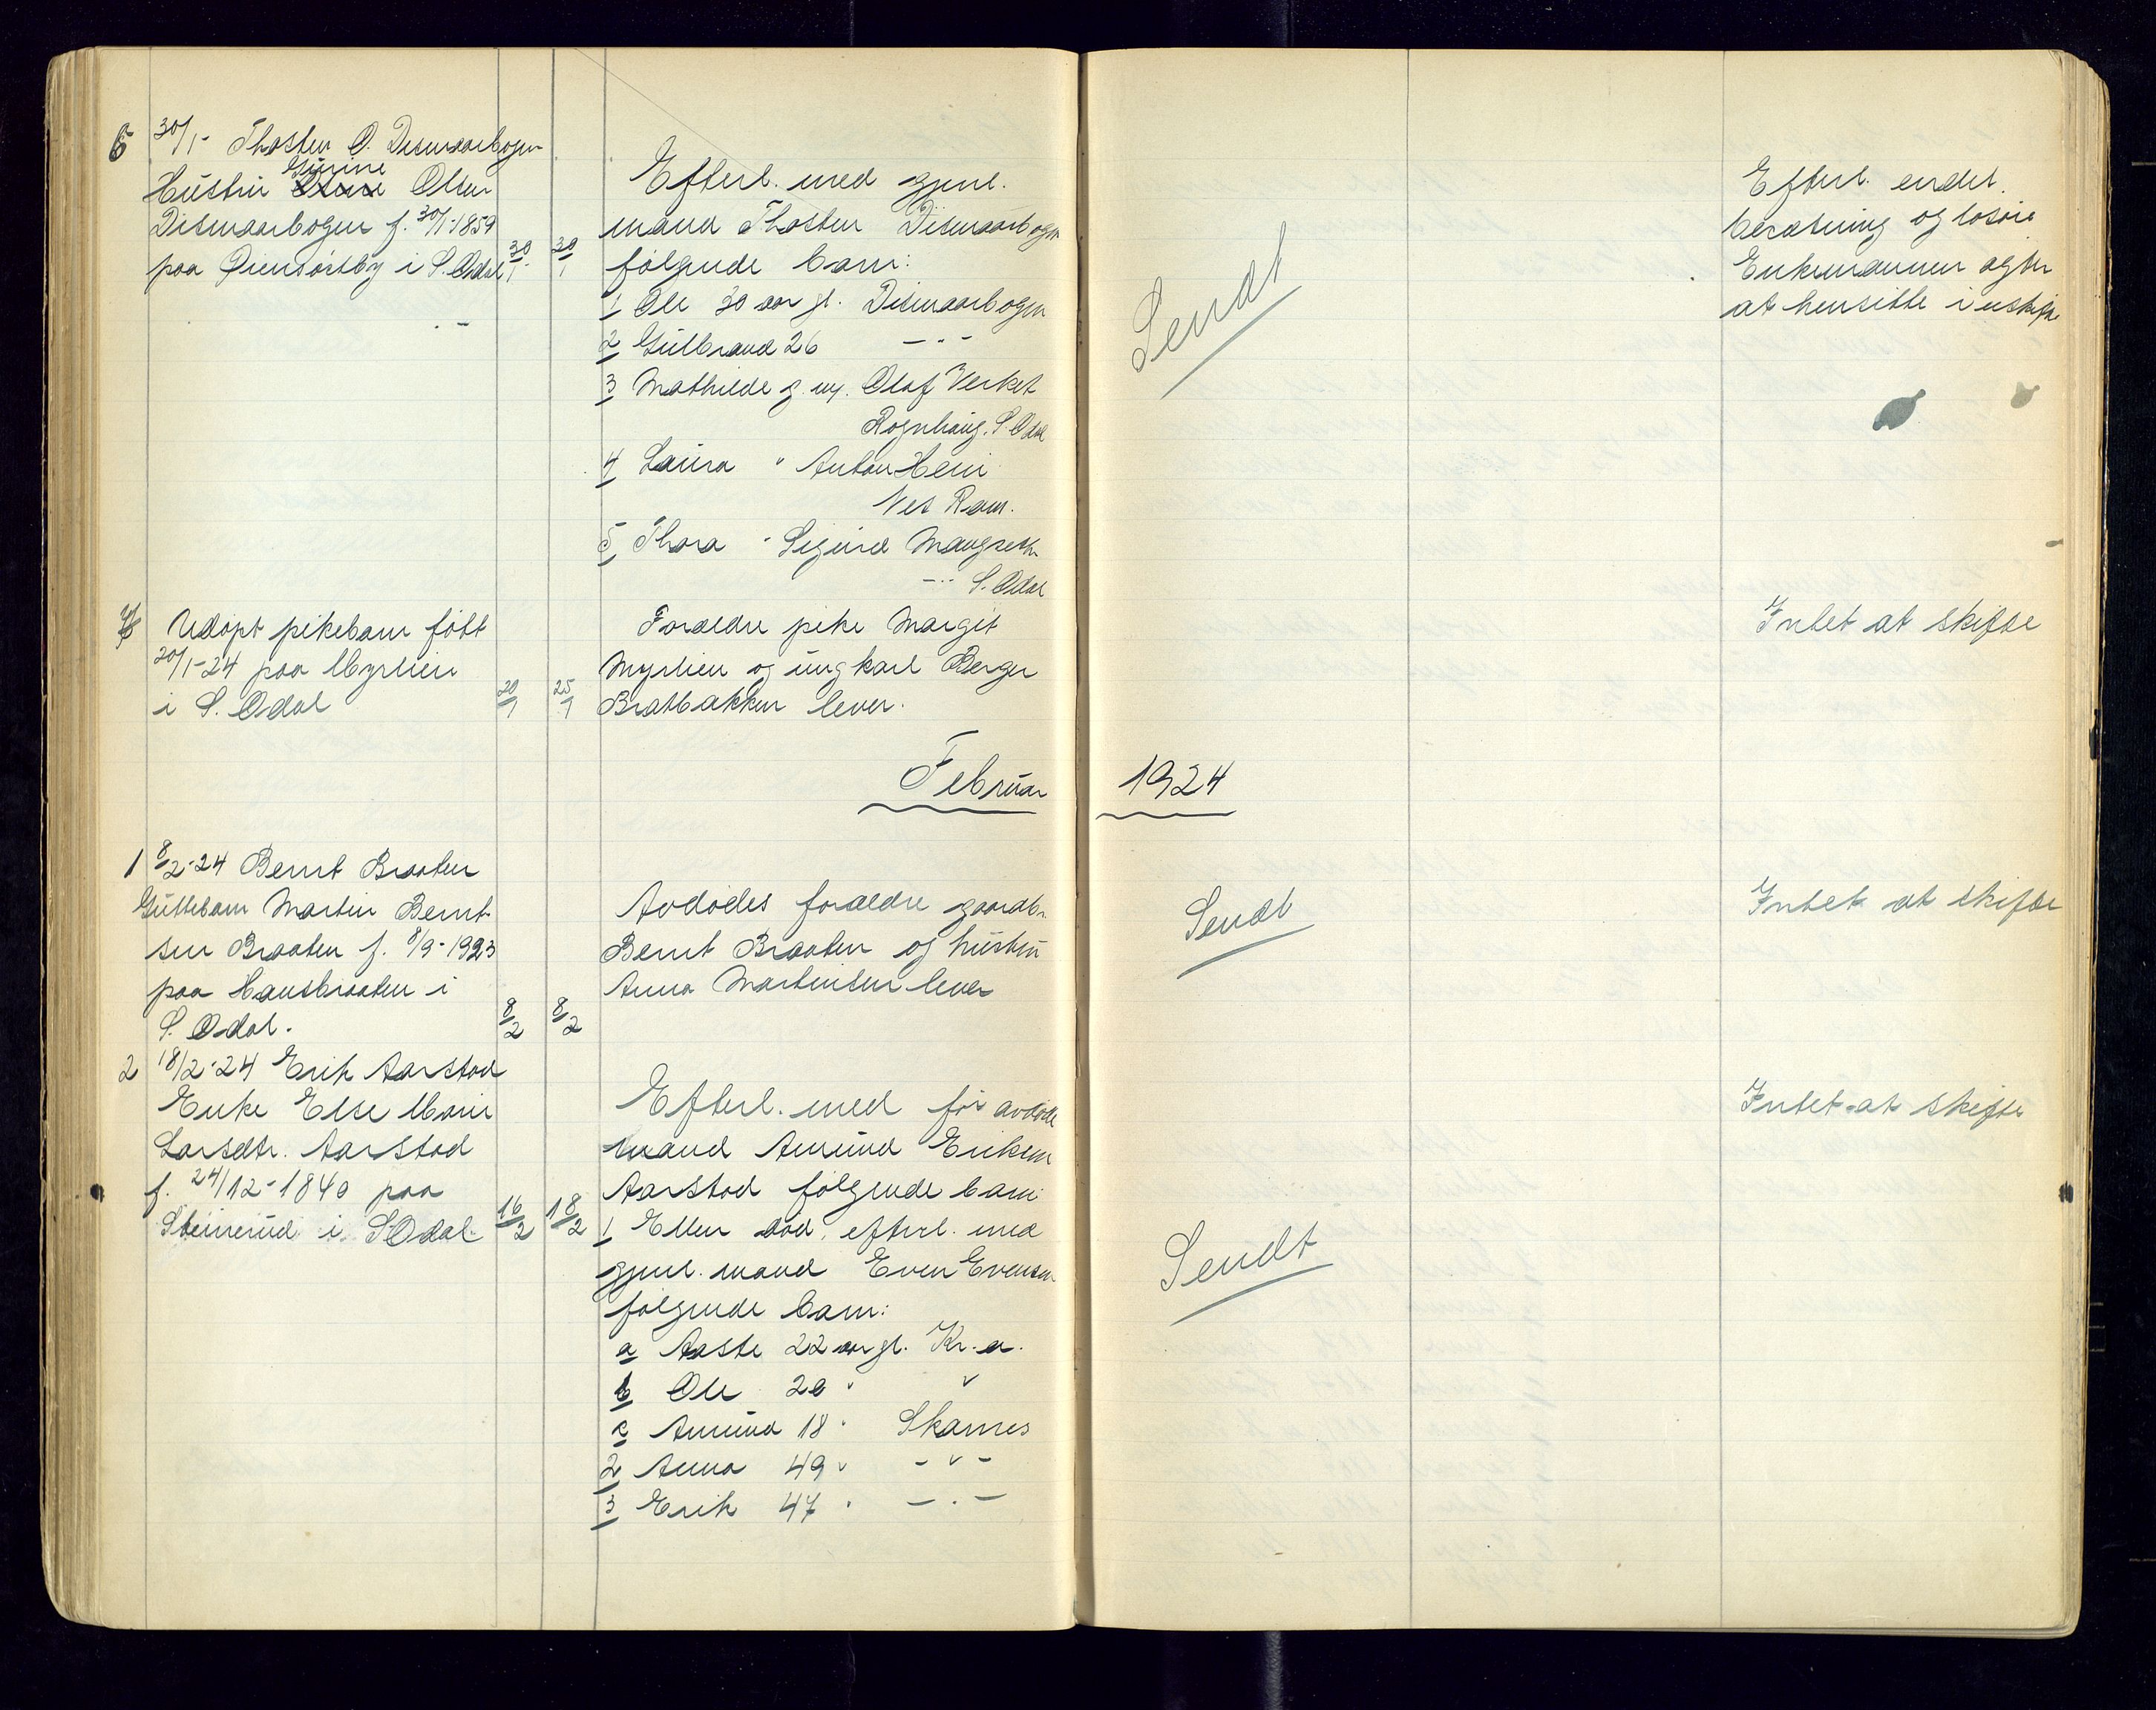 6 30/1- Thosten O. Dismaarbogen
Hustru Gurine Olsen
Dismaarbogen f. 30/1-1859
paa Øiensørtby i S. Odal 30/1- 30/1
Efterl. med gjenl.
mand Thosten Dismaarbogen
følgende barn:
1 Ole 30 aar gl. Dismaarbogen
2 Gulbrand 26 - " -
3 Mathilde g. m. Olaf Verket
Rognhaug. S. Odal
4 Laura " Anton Hem
Nes Rom.
5 Thora " Sigurd Mangseth
- " S. Odal
Sendt
Efterl. endel
besætning og løsøre
Enkemannen agter
at hensitte i uskifte
7 Udøpt pikebarn født
20/1-24 paa Myrlien
i S. Odal 20/1 25/1
Forældre pike Margit
Myrlien og ungkarl Berger
Bratbakken lever.
Intet at skifte
Februar 1924
1 8/2-24 Bernt Braaten
Guttebarn Martin Bernt-
sen Braaten f. 8/9-1923
paa Hansbraaten i
S. Odal. 8/2 8/2
Avdødes forældre gaardb.
Bernt Braaten og hustru
Anna Martinsen lever
Sendt
Intet at skifte
2 18/2-24 Erik Aarstad
Enke Else Marie
Larsdtr. Aarstad
f. 24/12-1840 paa
Steinerud i S Odal. 16/2 18/2
Efterl. med før avdøde
mand Amund Eriksen
Aarstad følgende barn
1 Ellen død, efterl. med
gjenl. mand Even Evensen
følgende barn:
a Aaste 22 aar gl. Kr.a.
b Ole 20 " "
c Amund 18 " Skarnes
2 Anna 49 " - " -
3 Erik 47 " - " -
Sendt
Intet at skifte